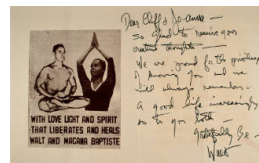 WITH LOVE LIGHT AND SPIRIT
THAT LIBERATES AND HEALS
WALT AND MAGANA BAPTISTE
Dear Cliff & Jo-anne —
So glad to receive your
thoughts —
We are grateful for the privilege
of knowing you and we
will always remember.
A good life increasingly
to you both —
Gratefully Be —
Walt